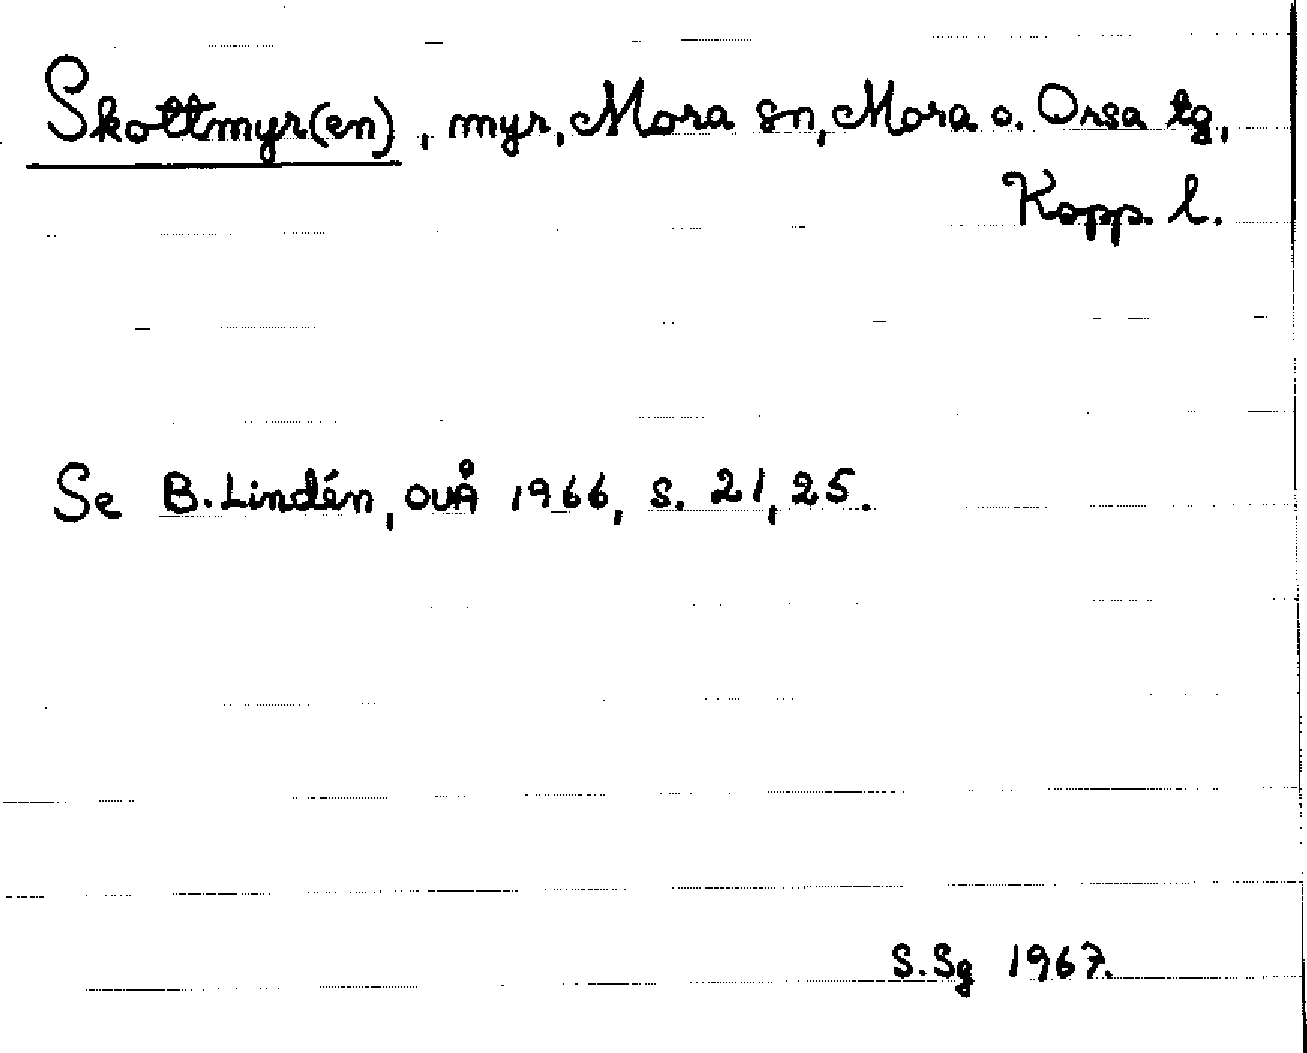 Skottmyr(en), myr, Mora sn, Mora o. Orsa tg,
Kopp. l.
Se B. Lindén, OUÅ 1966, s. 21, 25.
S.Sg 1967.